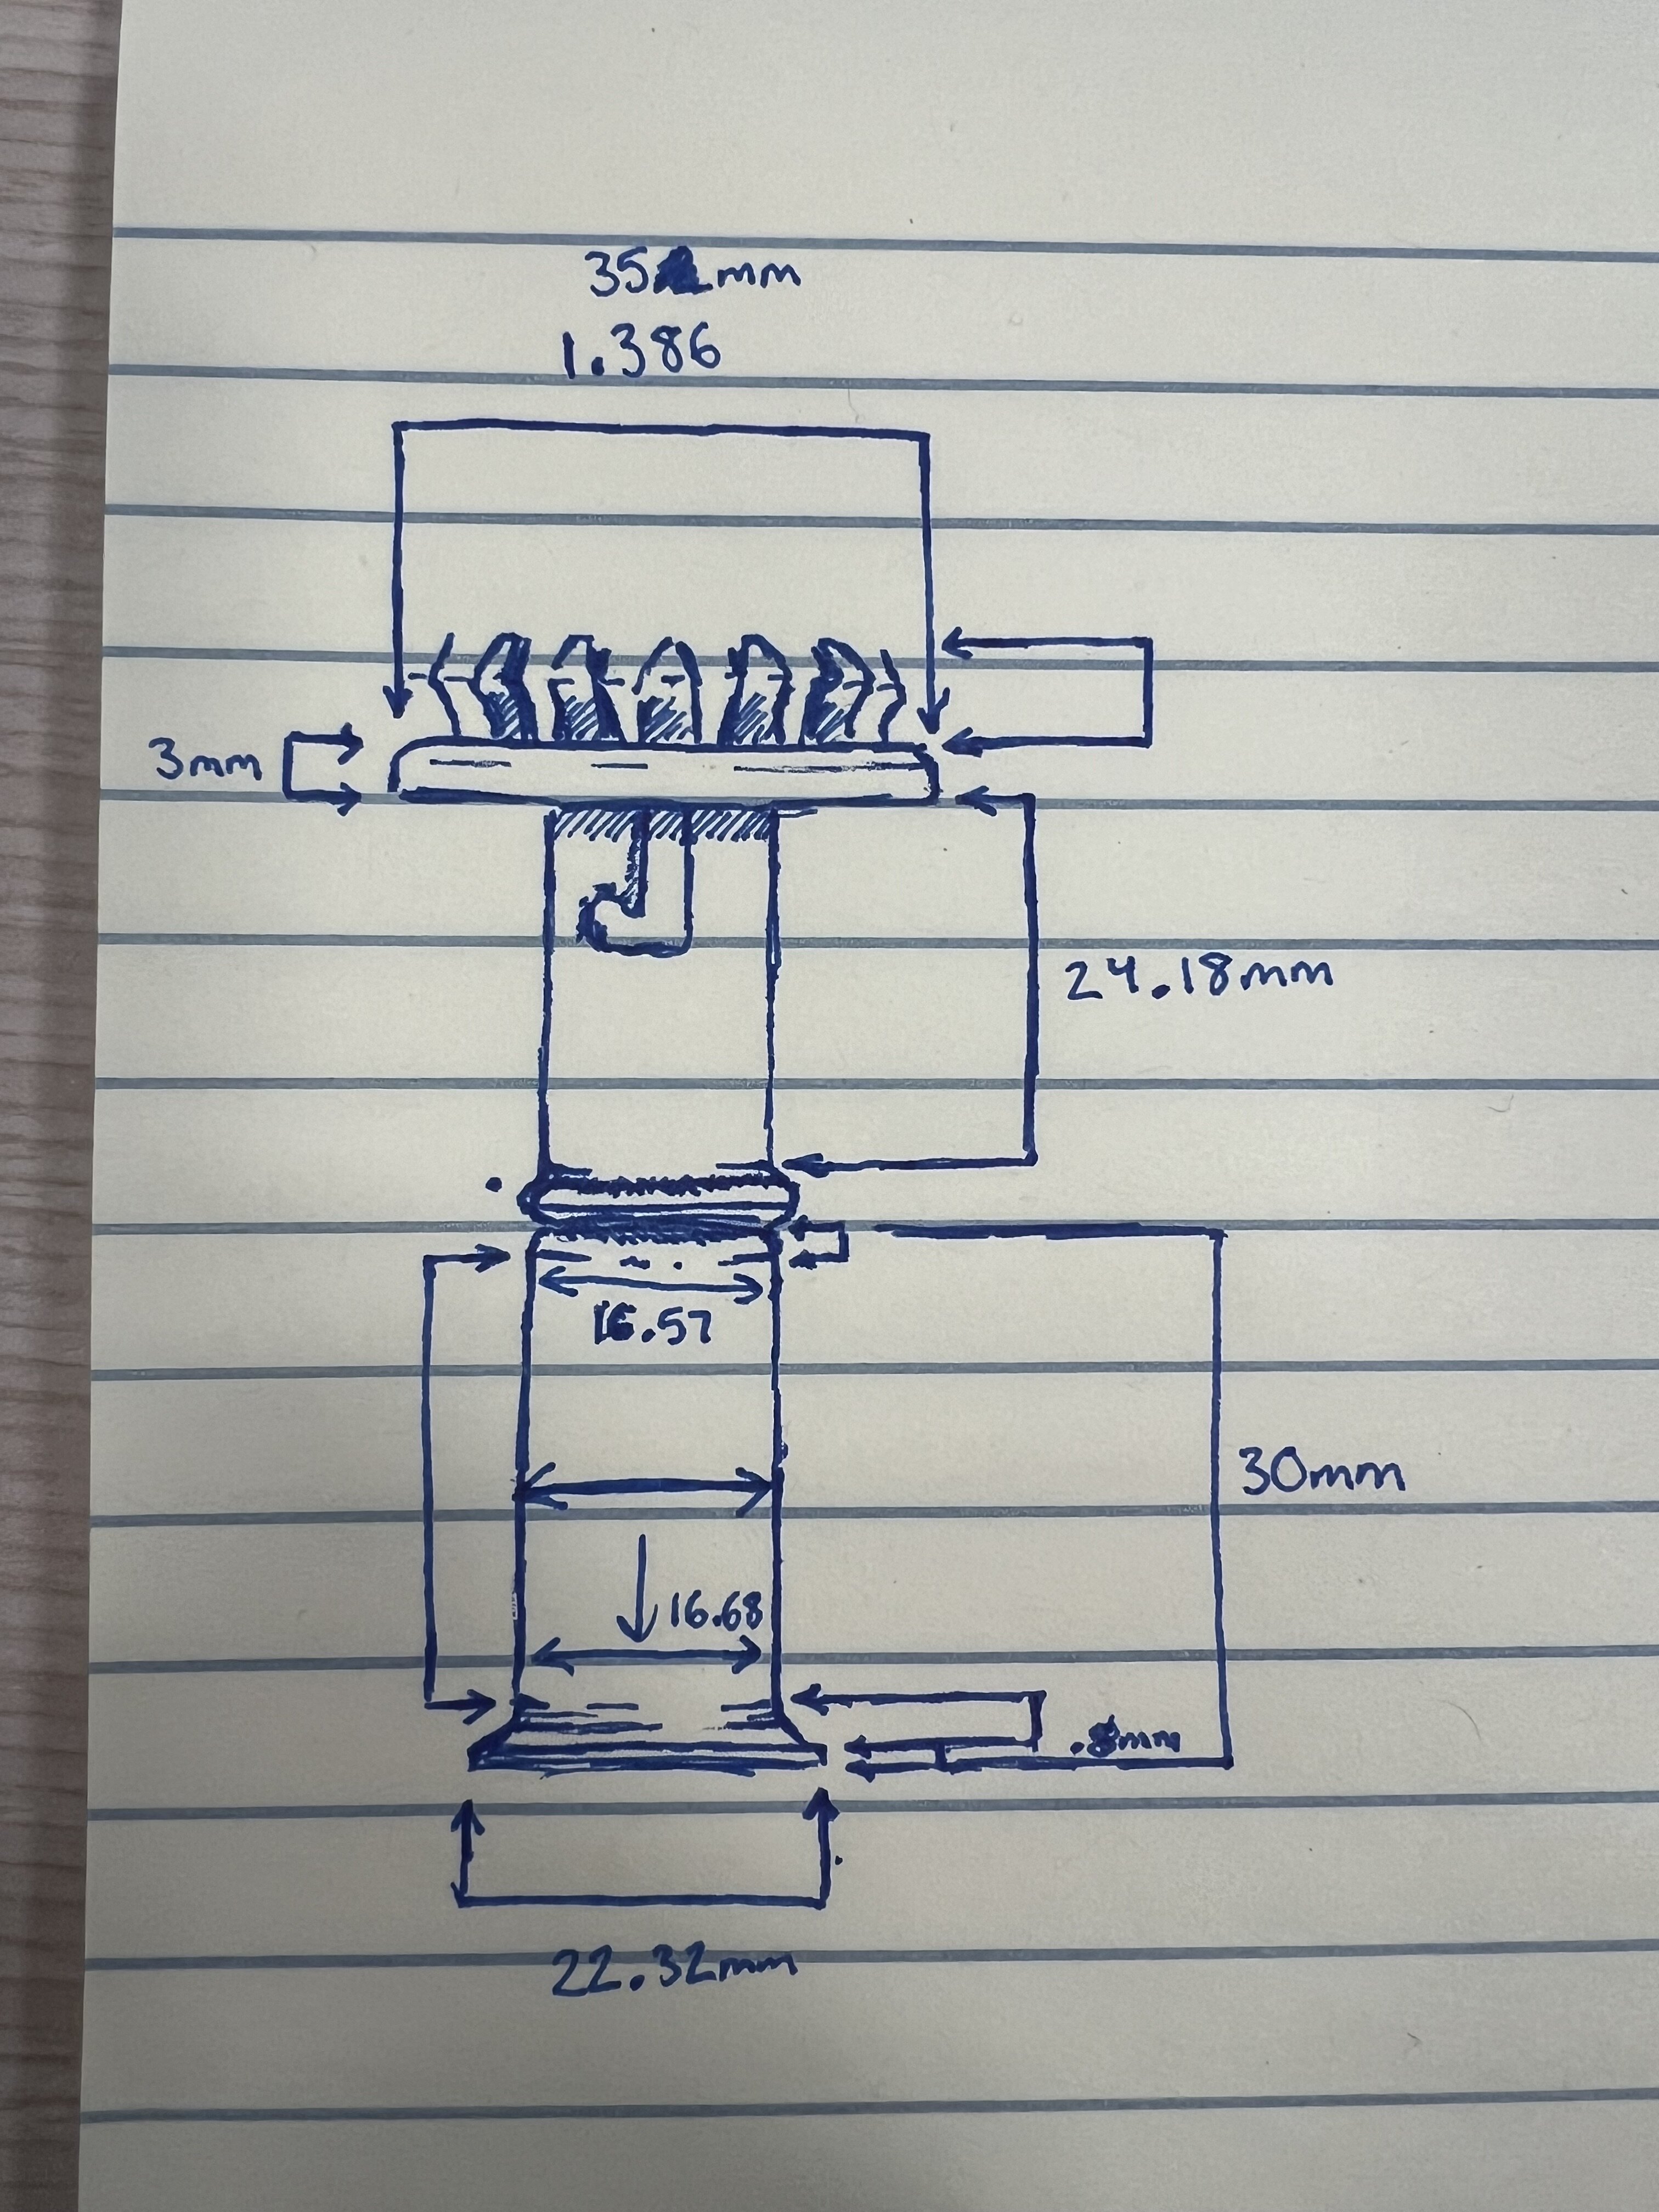 35 mm
1.386
3mm
24.18mm
16.57
30mm
16.68
.8mm
22.32mm